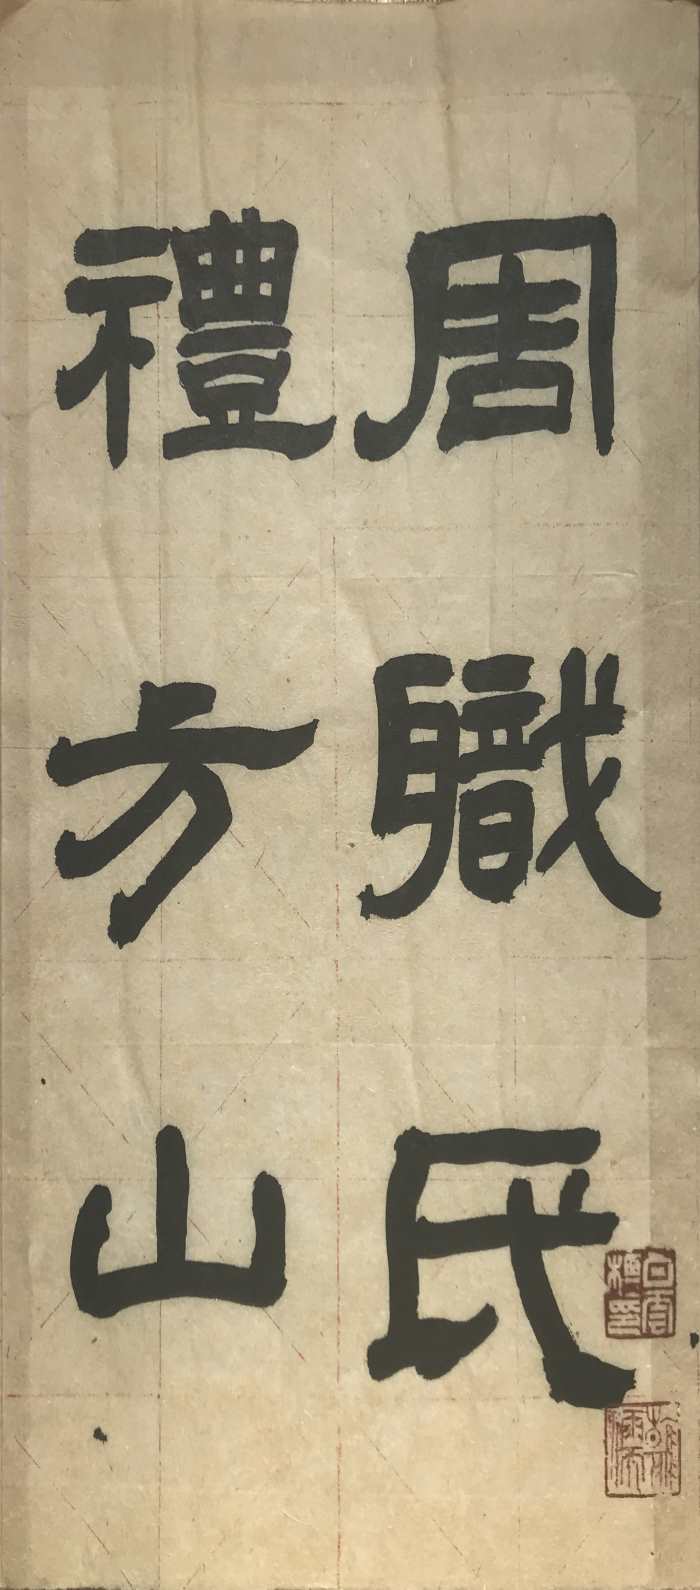 周職氏
禮方山